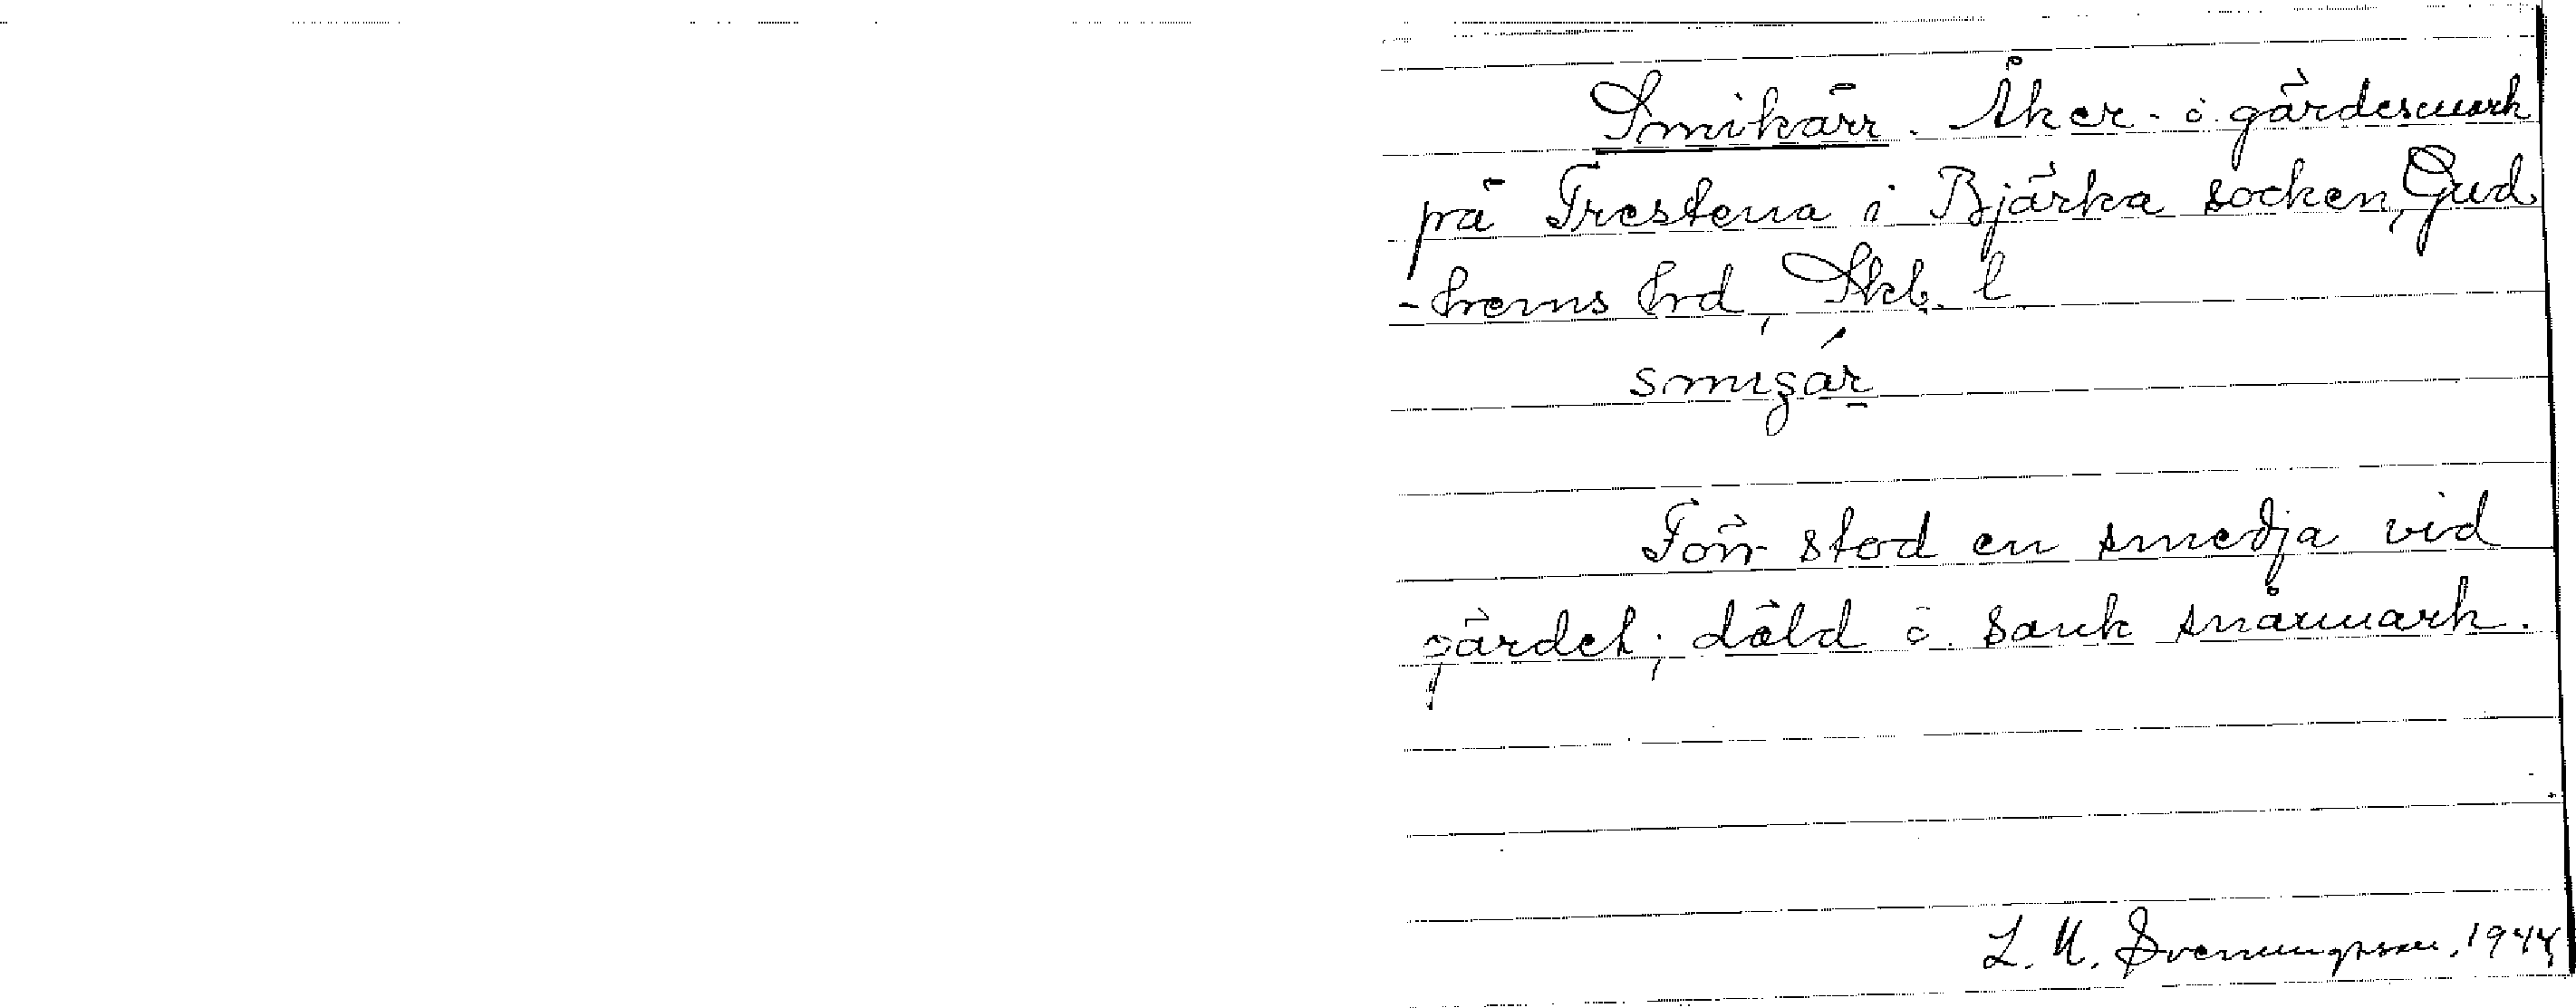 Smikärr. Åker- o. gärdesmark
på Trestena i Bjärka socken, Gud
-hems hrd, Skb. l.
Förr stod en smedja vid
gärdet; däld o. sank snårmark.
L. M. Svenungsson, 1944